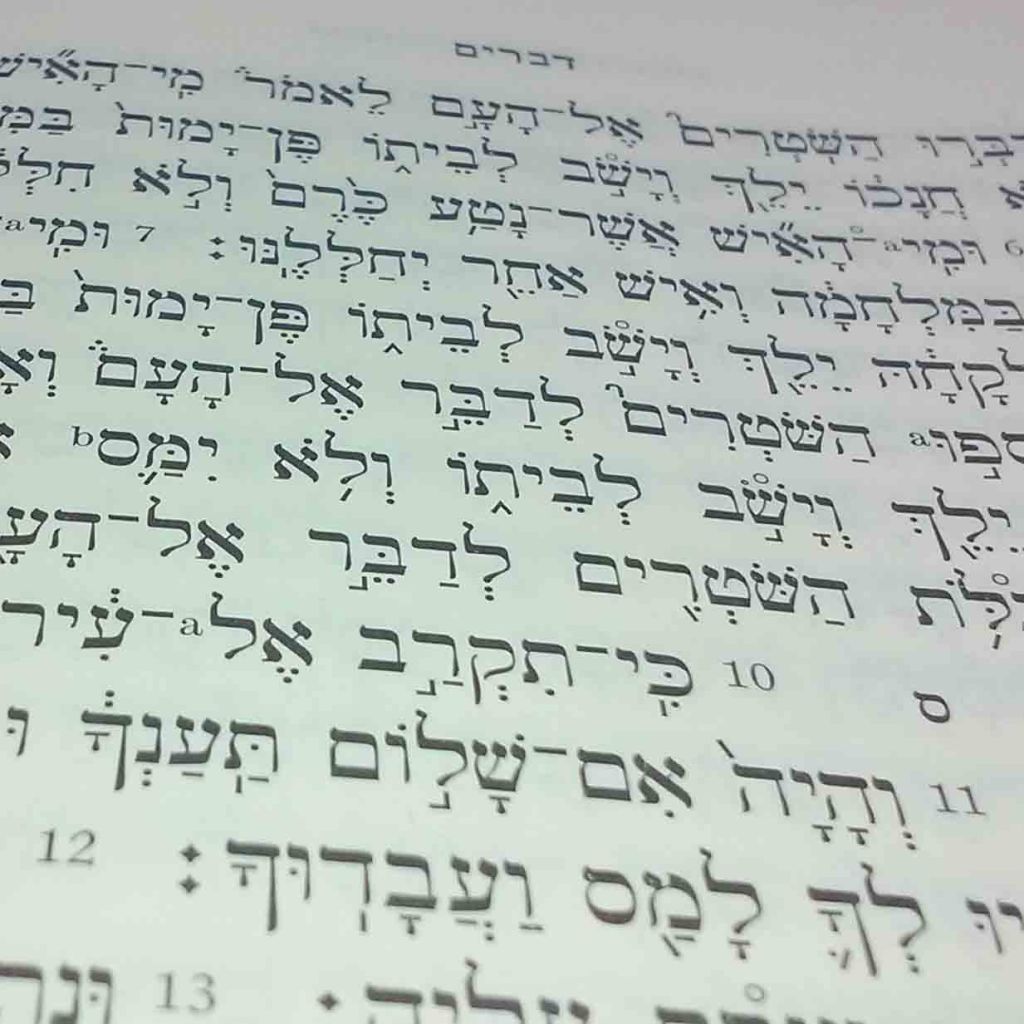 דברים
הַשֹּׁטְרִים֮ אֶל־הָעָ֣ם לֵאמֹר֒ מִֽי־הָאִ֞ישׁ
חֲנָכ֔וֹ יֵלֵ֖ךְ וְיָשֹׁ֣ב לְבֵית֑וֹ פֶּן־יָמוּת֙
6 וּמִֽי־הָאִ֞ישׁ אֲשֶׁר־נָטַ֥ע כֶּ֙רֶם֙ וְלֹ֣א
בַּמִּלְחָמָ֔ה וְאִ֥ישׁ אַחֵ֖ר יְחַלְּלֶֽנּוּ׃ 7 וּמִֽי
לְקָחָ֔הּ יֵלֵ֖ךְ וְיָשֹׁ֣ב לְבֵית֑וֹ פֶּן־יָמוּת֙
הַשֹּׁטְרִים֮ לְדַבֵּ֣ר אֶל־הָעָם֒
יֵלֵ֖ךְ וְיָשֹׁ֣ב לְבֵית֑וֹ וְלֹ֥א יִמַּ֛ס b
הַשֹּׁטְרִ֖ים לְדַבֵּ֣ר
ס 10 כִּֽי־תִקְרַ֣ב אֶל a־עִ֔יר
11 וְהָיָה֙ אִם־שָׁל֣וֹם תַּֽעַנְךָ֔
לְךָ֥ לָמַ֖ס וַעֲבָדֽוּךָ׃ 12
13